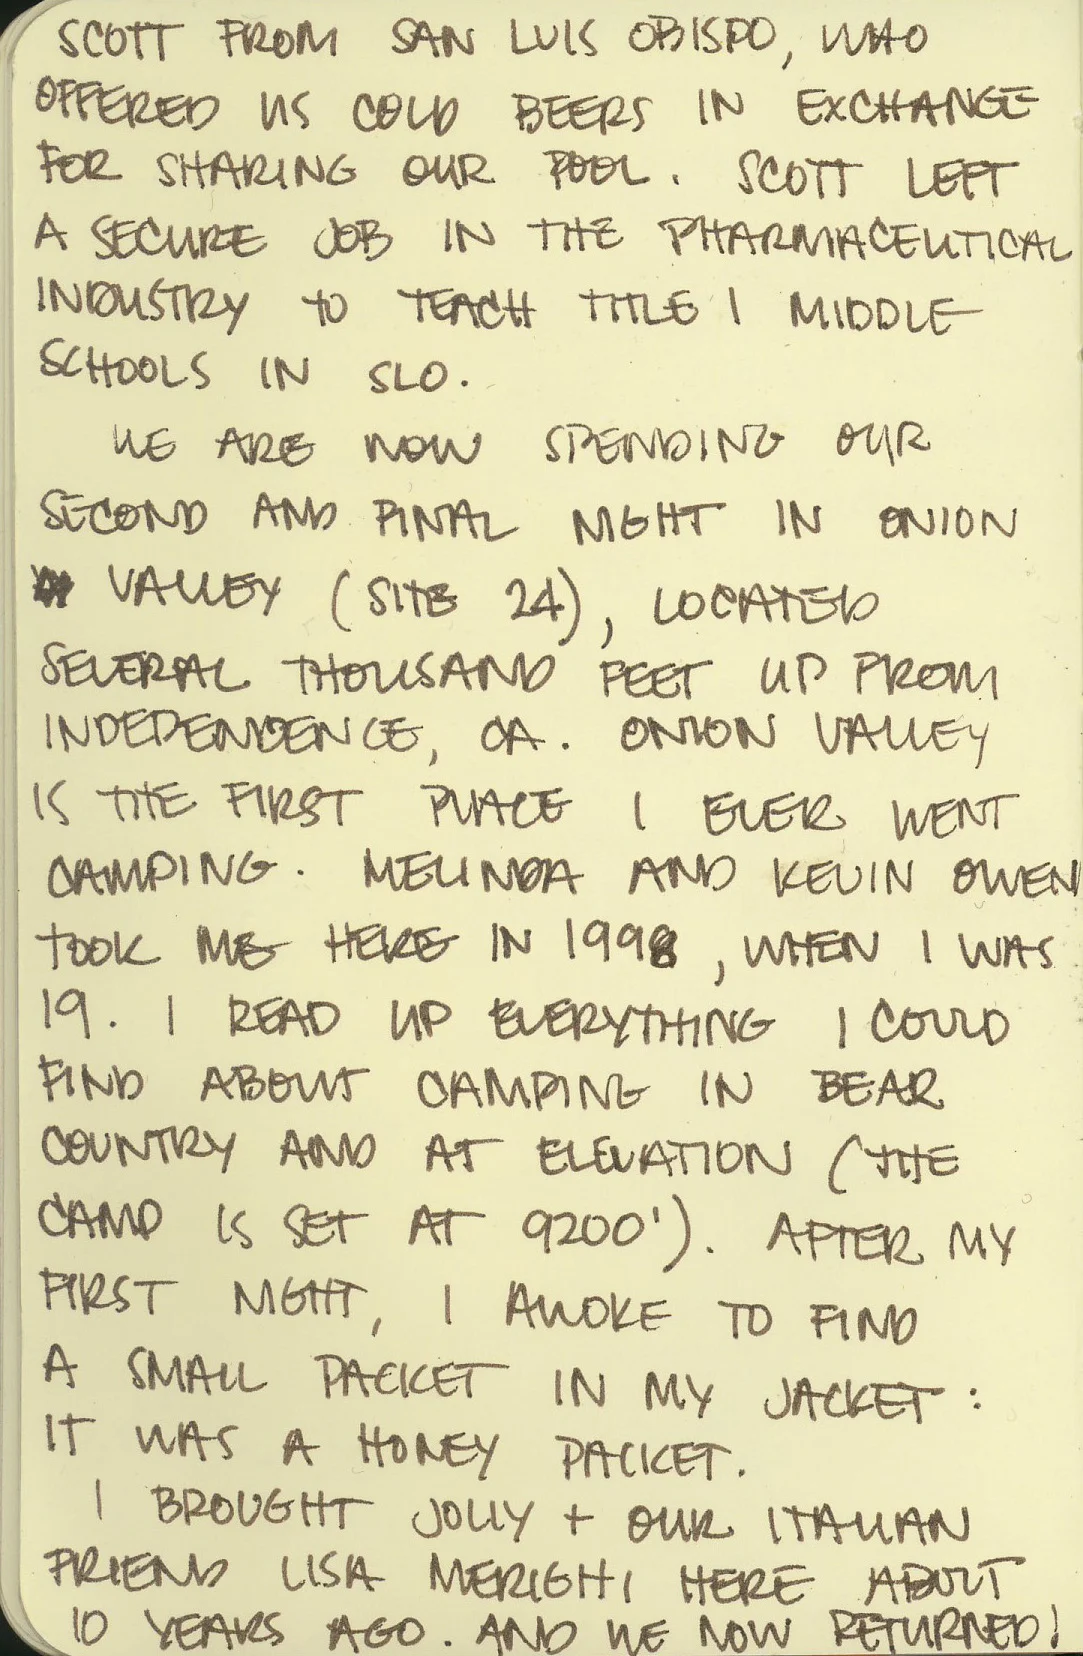 SCOTT FROM SAN LUIS OBISPO, WHO
OFFERED US COLD BEERS IN EXCHANGE
FOR SHARING OUR POOL. SCOTT LEFT
A SECURE JOB IN THE PHARMACEUTICAL
INDUSTRY TO TEACH TITLE I MIDDLE
SCHOOLS IN SLO.
WE ARE NOW SPENDING OUR
SECOND AND FINAL NIGHT IN ONION
VALLEY (SITE 24), LOCATED
SEVERAL THOUSAND FEET UP FROM
INDEPENDENCE, CA. ONION VALLEY
IS THE FIRST PLACE I EVER WENT
CAMPING. MELINDA AND KEVIN OWEN
TOOK ME HERE IN 1998, WHEN I WAS
19. I READ UP EVERYTHING I COULD
FIND ABOUT CAMPING IN BEAR
COUNTRY AND AT ELEVATION (THE
CAMP IS SET AT 9200'). AFTER MY
FIRST NIGHT, I AWOKE TO FIND
A SMALL PACKET IN MY JACKET:
IT WAS A HONEY PACKET.
I BROUGHT JOLLY + OUR ITALIAN
FRIEND LISA MERIGHI HERE ABOUT
10 YEARS AGO. AND WE NOW RETURNED!